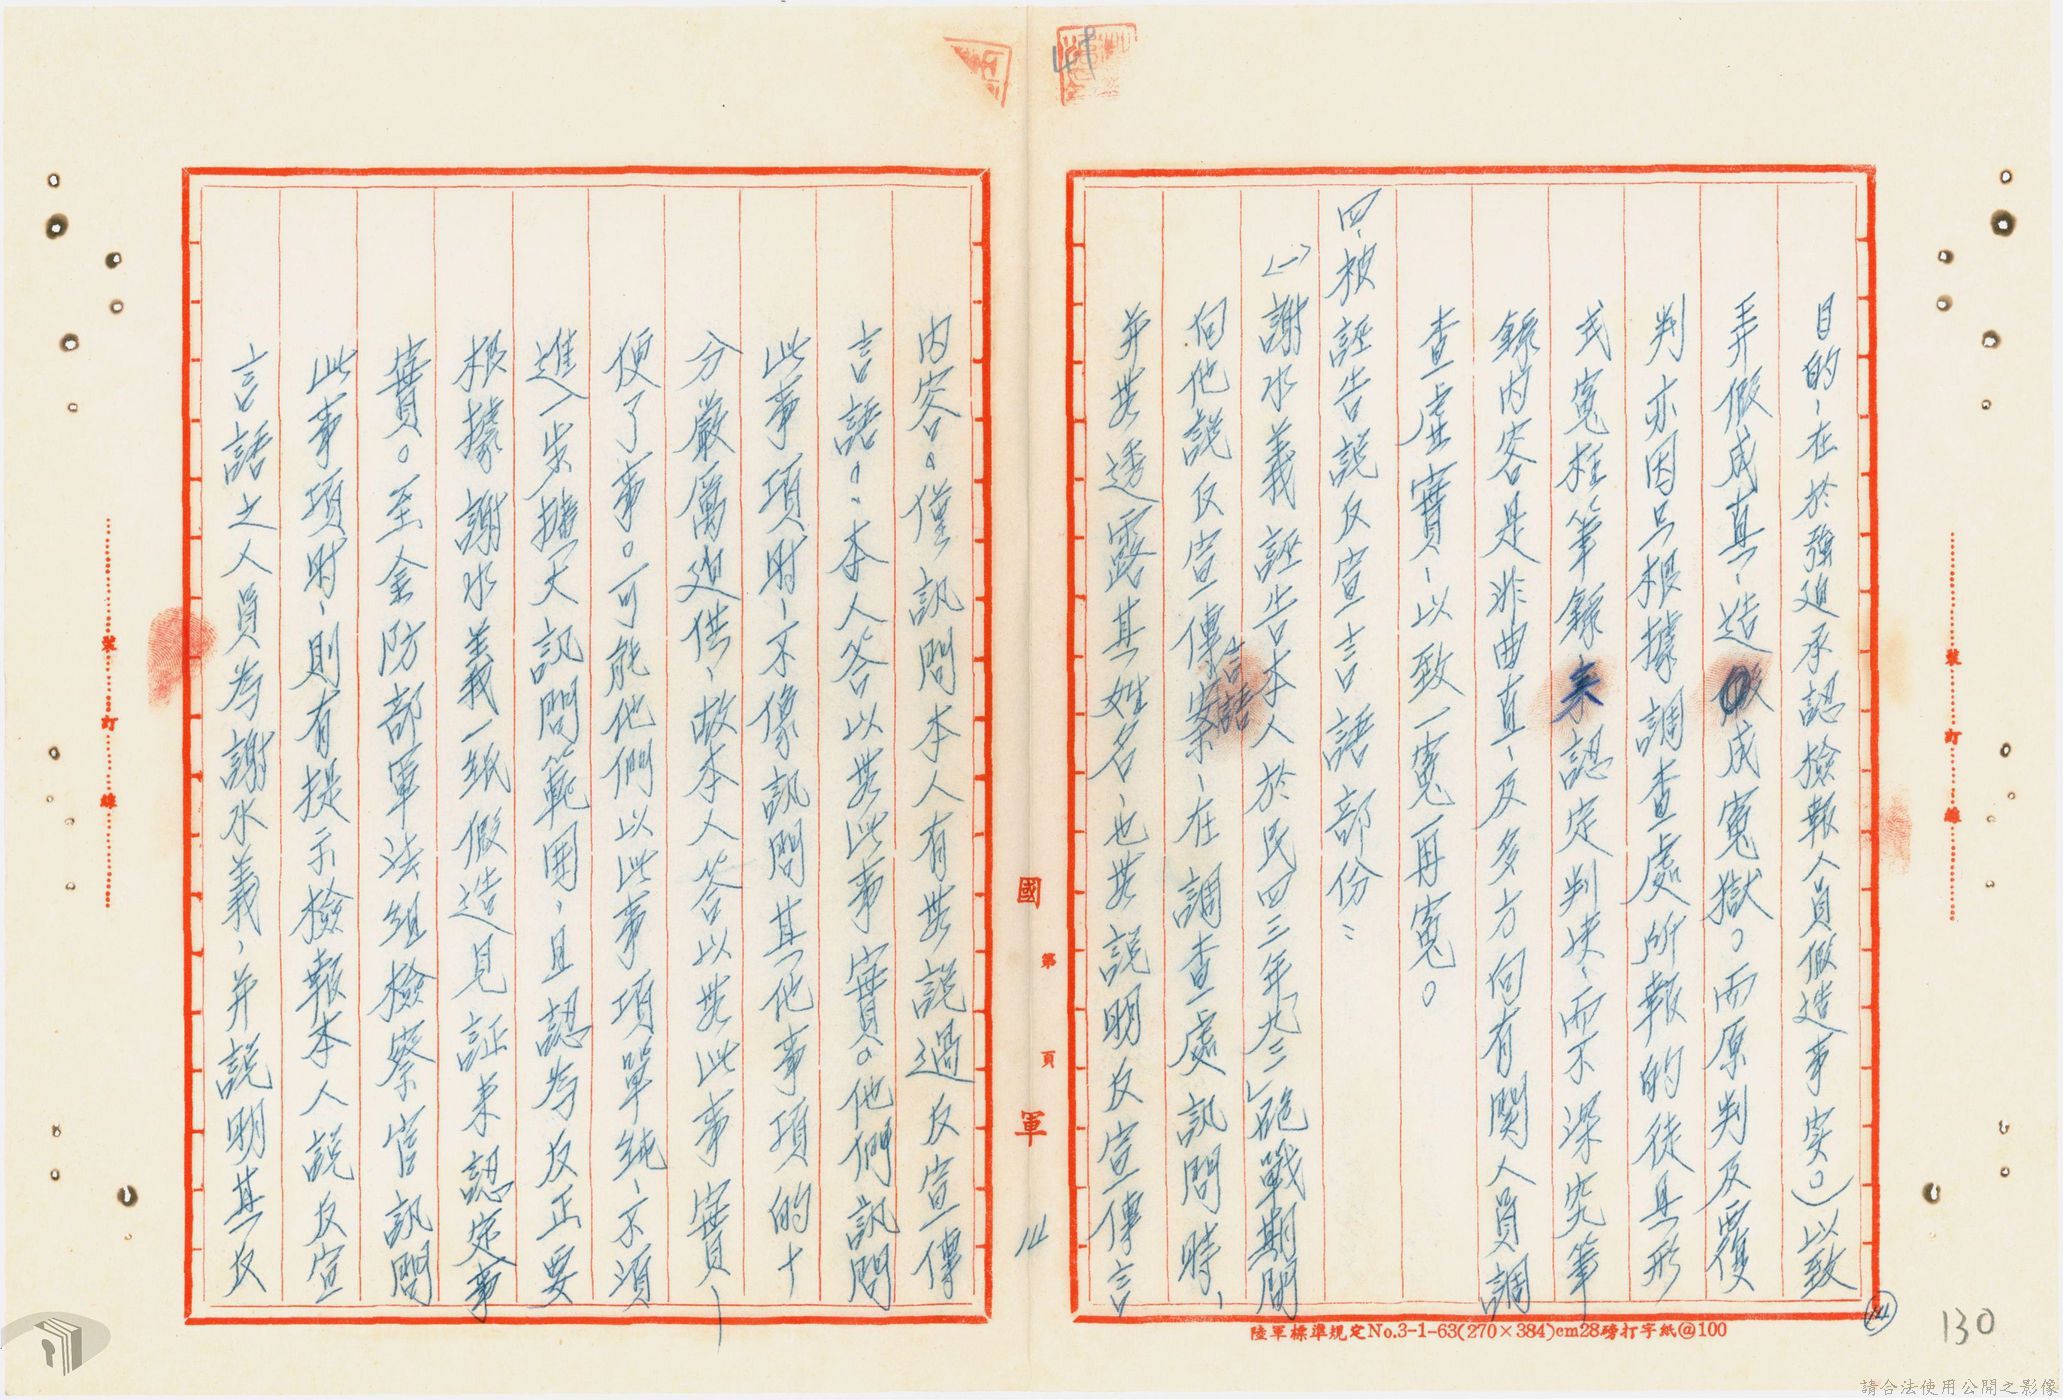 目的、在於強迫承認檢報人員假造事实。）以致
弄假成真、造成寃獄。而原判及覆
判亦因只根據調查處所報的徒具形
式寃枉筆錄來認定判决、而不深究筆
錄內容是非曲直、及多方向有関人員調
查虛實、以致一寃再寃。
四、被誣告說反宣言語部份：
㈠謝水義誣告本人於民四三年「九三」砲戰期間
向他說反宣傳言語、在調查處訊問時、
并無透露其姓名、也無説明反宣傳言
內容。僅訊問本人有無説過反宣傳
言語。：本人答以無此事實。他們訊問
此事項時、不像訊問其他事項的十
分嚴厲迫供、故本人答以無此事實、
便了事。可能他們以此事項單純、不須
進一步擴大訊問範囲、且認為反正要
根據謝水義一紙假造見証来認定事
實。至金防部軍法組檢察官訊問
此事項時、則有提示檢報本人説反宣
言語之人員為謝水義、并説明其反
國軍
第 頁
14
裝訂線
裝訂線
陸軍標準規定No.3-1-63(270×384)cm28磅打字紙@100
14
130
請合法使用公開之影像